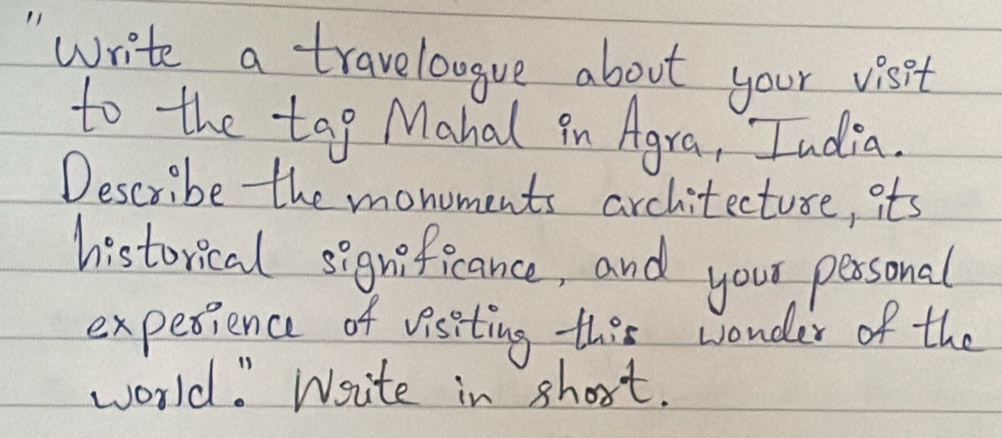 "Write a travelougue about your visit
to the taj Mahal in Agra, India.
Describe the monuments architecture, its
historical significance, and your personal
experience of visiting this wonder of the
world." Write in short.